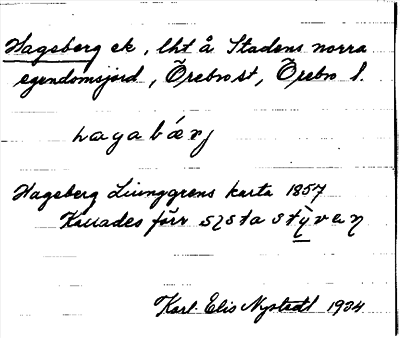 Hageberg ek, lht å Stadens norra
egendomsjord, Örebro st, Örebro l.
hagabærj
Hageberg Liunggrens karta 1857
Kallades förr sista styven
Karl Elis Nystedt 1934